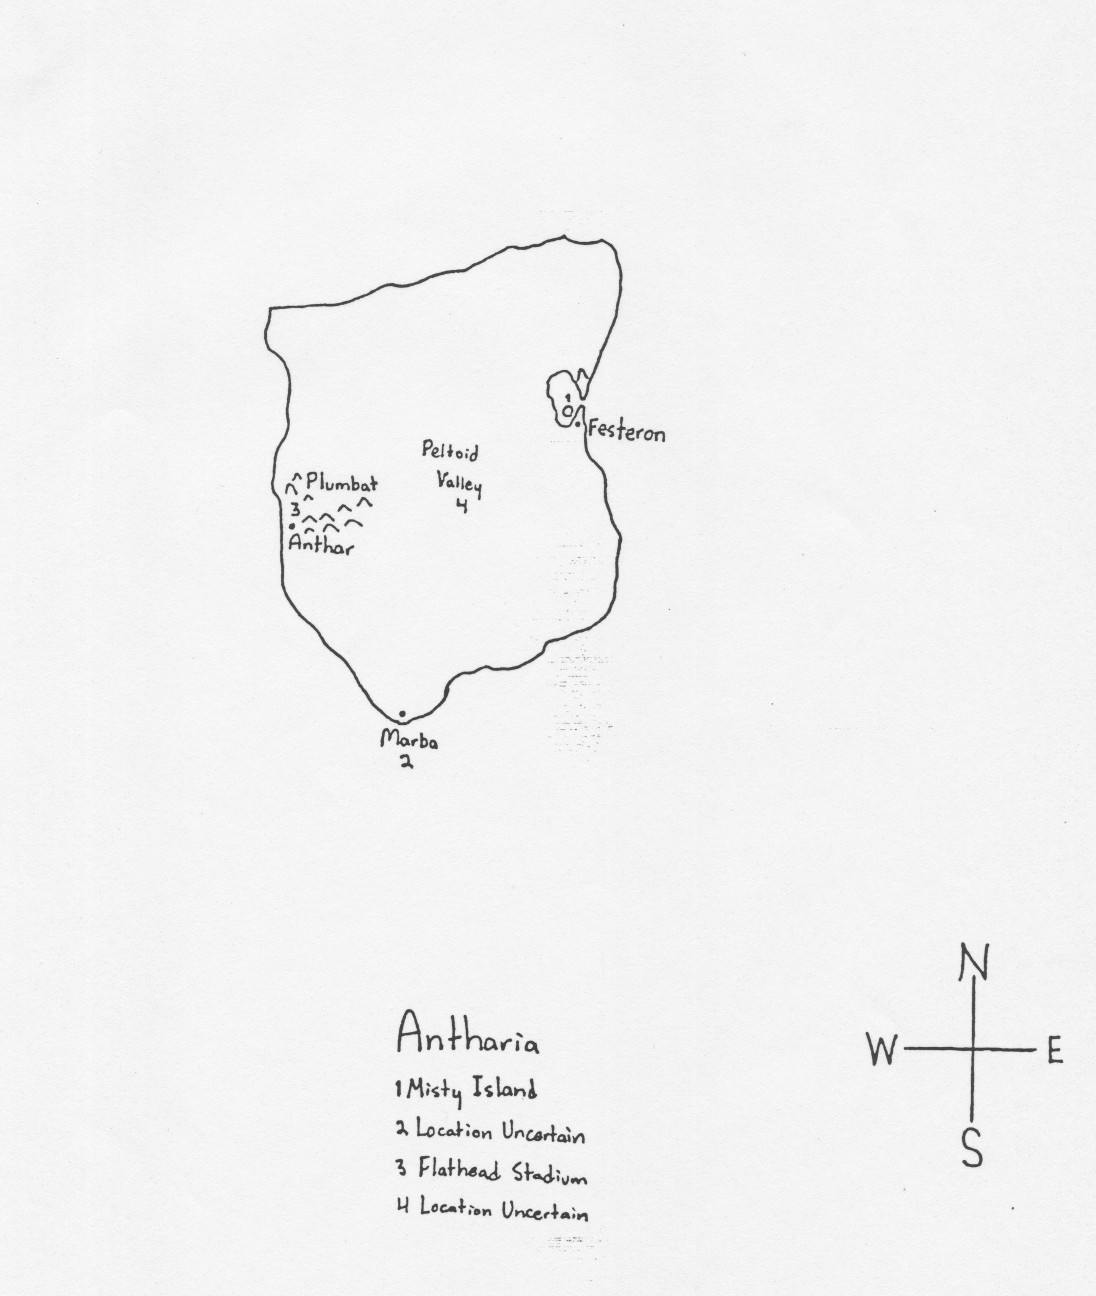 1
Festeron
Peltoid
Valley
4
Plumbat
3
Anthar
Marba
2
N
W E
S
Antharia
1 Misty Island
2 Location Uncertain
3 Flathead Stadium
4 Location Uncertain